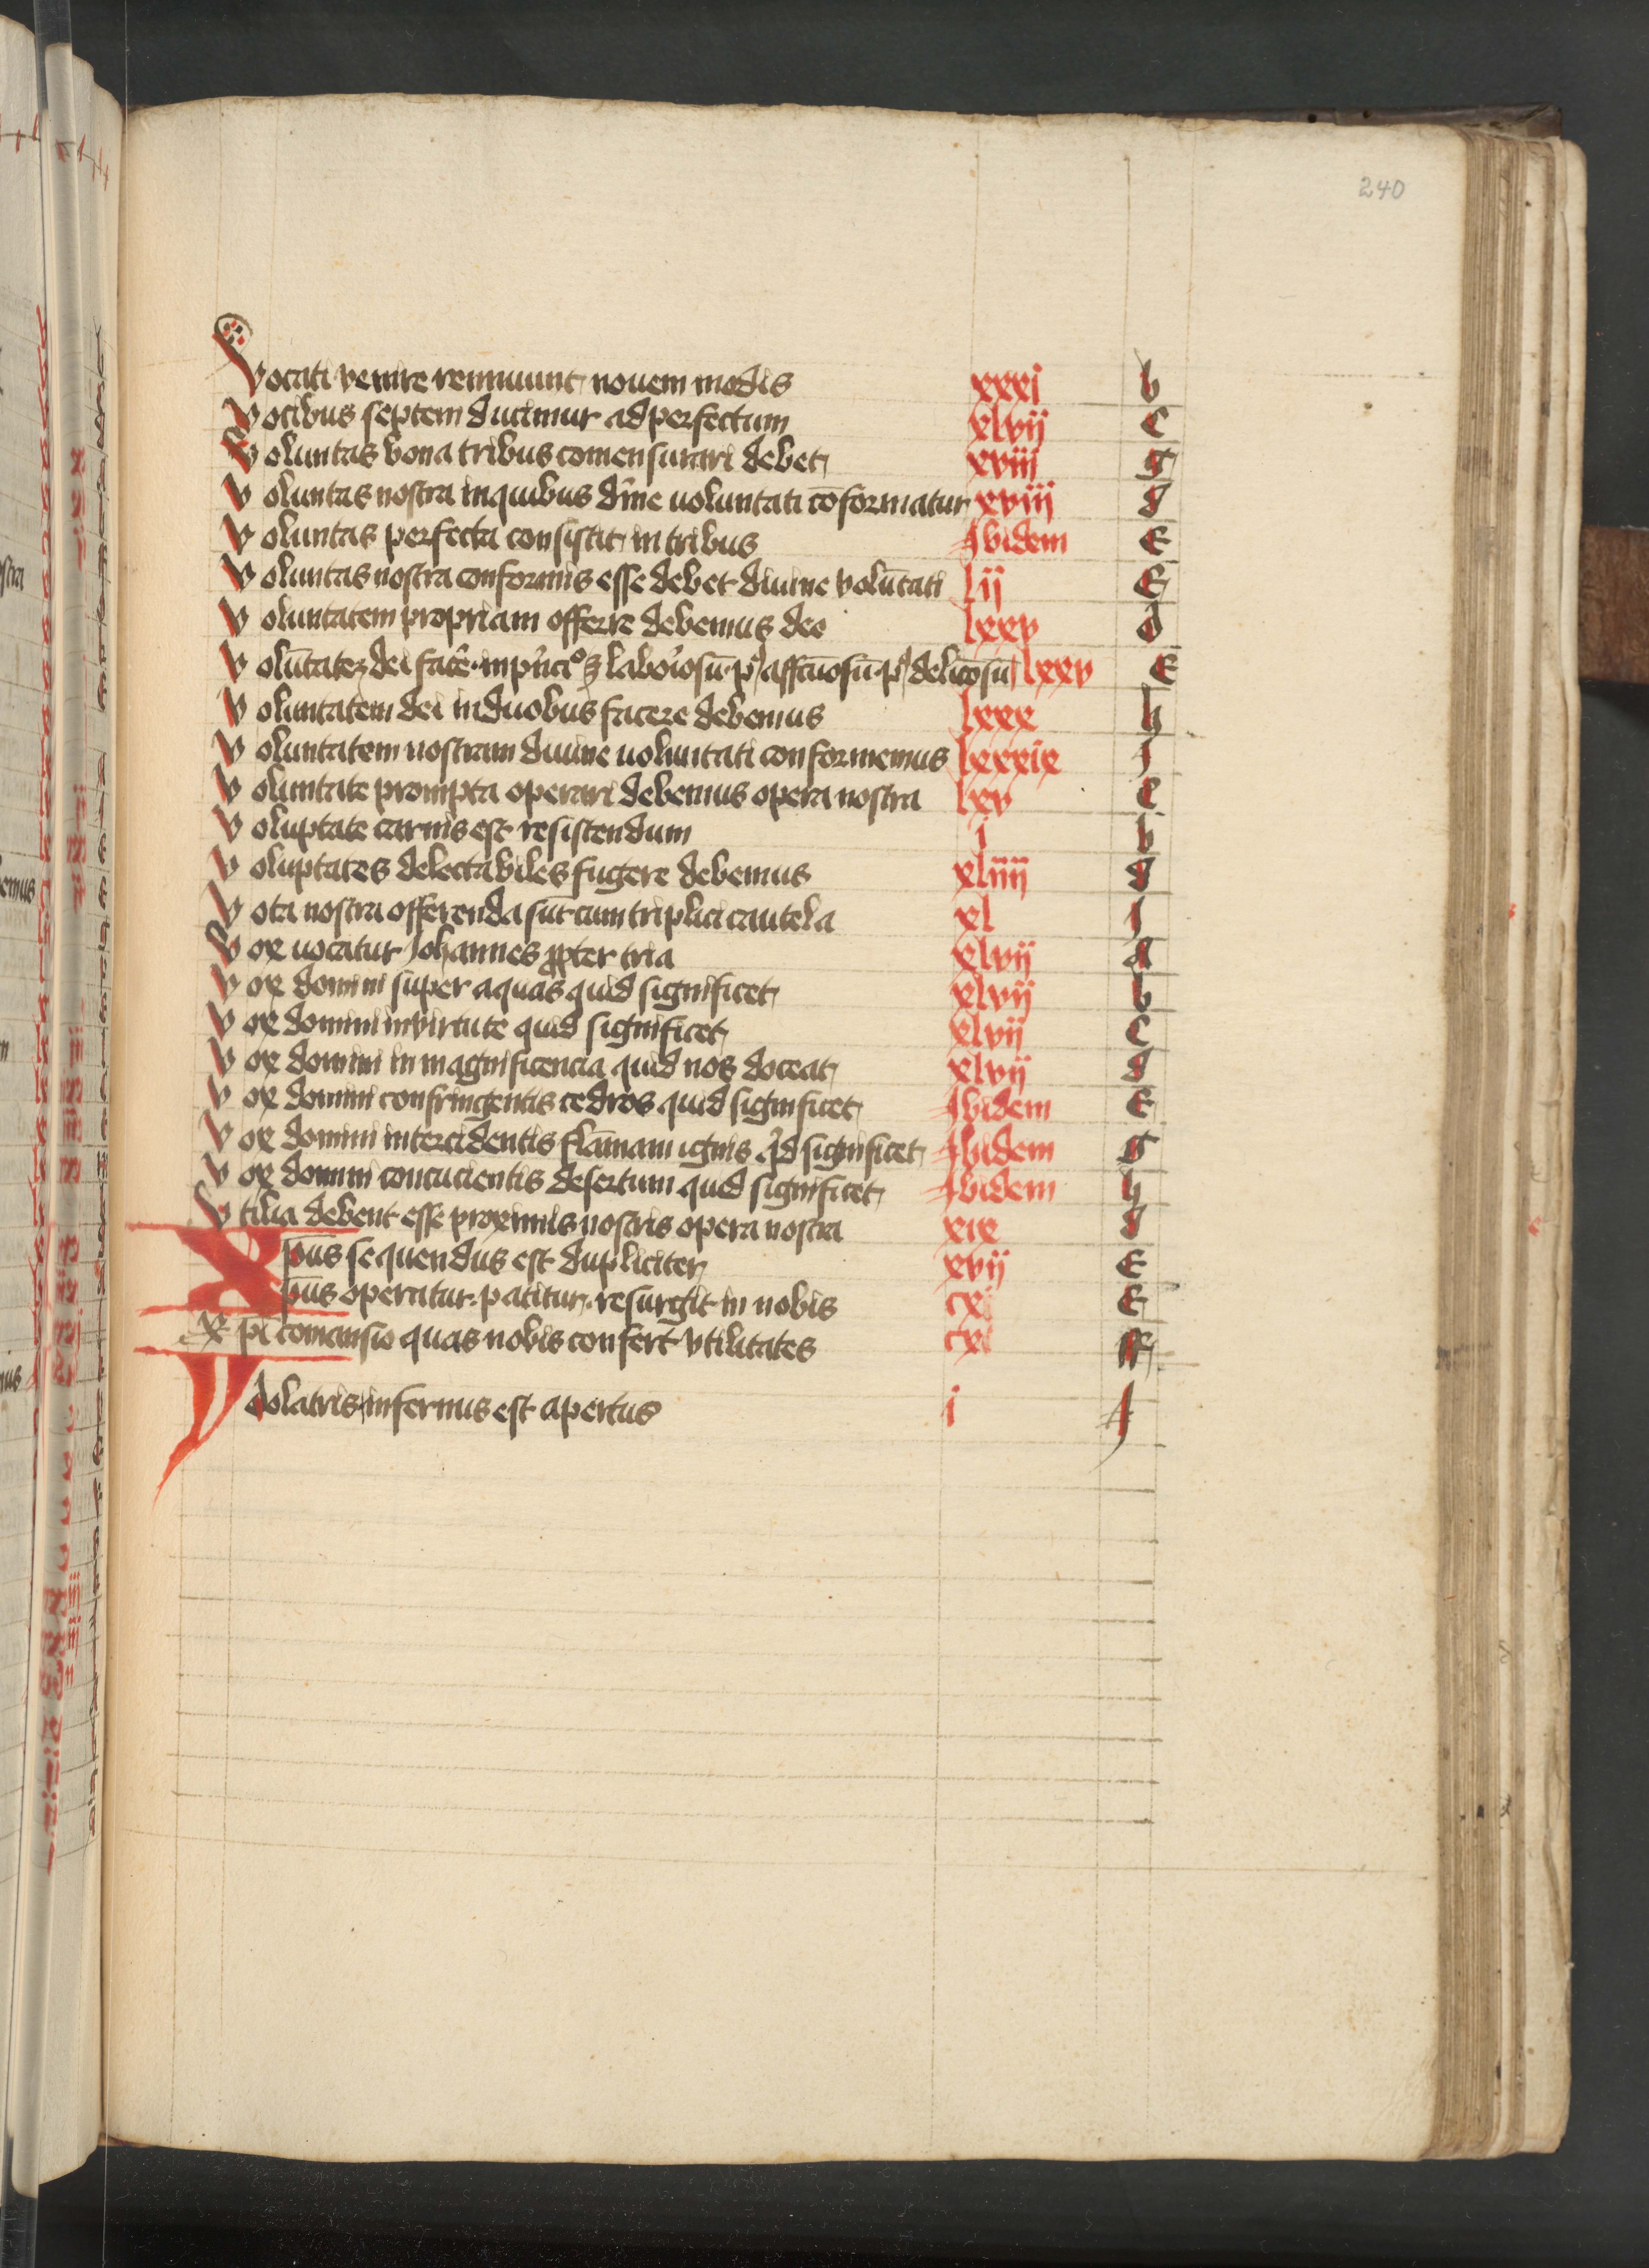 240
Vocati venire rennuunt novem modis xxxj b
Vocibus septem ducimur ad perfectum xlvij C
Voluntas bona tribus comensurari debet xviij g
Voluntas nostra in quibus diuine uoluntati cōformatur xviij d
Voluntas perfecta consistit in tribus Ibidem E
Voluntas nostra conformis esse debet diuine volūtati lij E
Voluntatem propriam offerre debemus deo lxxv d
Volūtatez dei facē lxxv E
Voluntatem dei in duobus facere debemus lxxx h
Voluntatem nostram diuine uoluntati conformemus lxxxix J
Voluntate prompta operari debemus opera nostra lxv C
Voluptate carnis est resistendum i b
Voluptates delectabiles fugere debemus xliiij d
Vota nostra offerenda sūt cum triplici cautela xl J
Vox uocatur Johannes ꝓpter tria xlvij a
Vox domini super aquas quid significet xlvij b
Vox domini in virtute quid significet xlvij C
Vox domini in magnificencia quid nos doceat xlvij d
Vox domini confringentis cedros quid significet Ibidem E
Vox domini intercidentis flāmam ignis qͥd significet Ibidem G
Vox domini concucientis desertum quid significet Ibidem h
Vtilia debent esse proximis nostris opera nostra xix d
Xpūs sequendus est dupliciter xvij E
pūs operatur patitur resurgit in nobis cxi E
Xpī comansio quas nobis confert vtilitates cxi ff
Ydolatris infernus est apertus i J